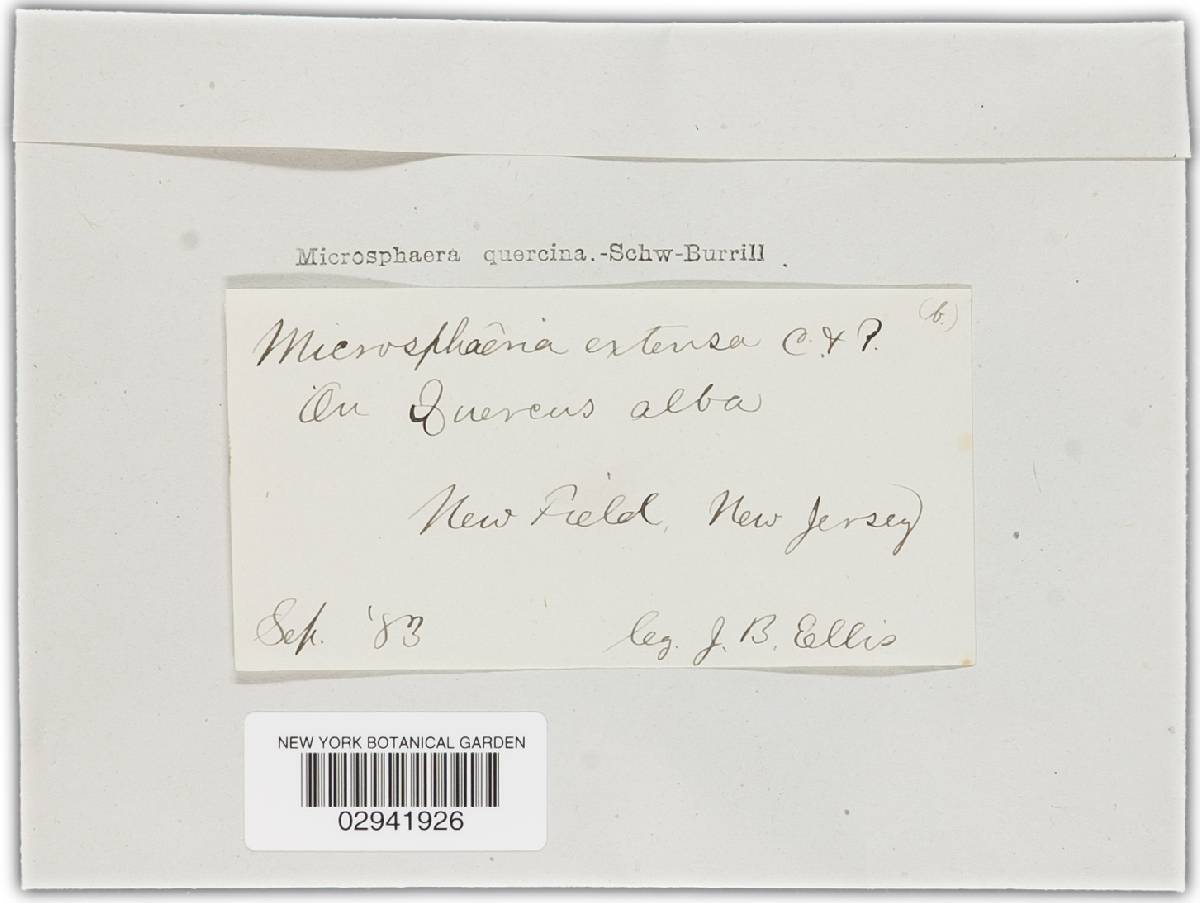 Microsphaera quercina.-Schw-Burrill.
(b.)
Microsphaëria extensa C. & P.
On Quercus alba
New Field, New Jersey
Sep. '83 leg. J. B. Ellis
NEW YORK BOTANICAL GARDEN
02941926